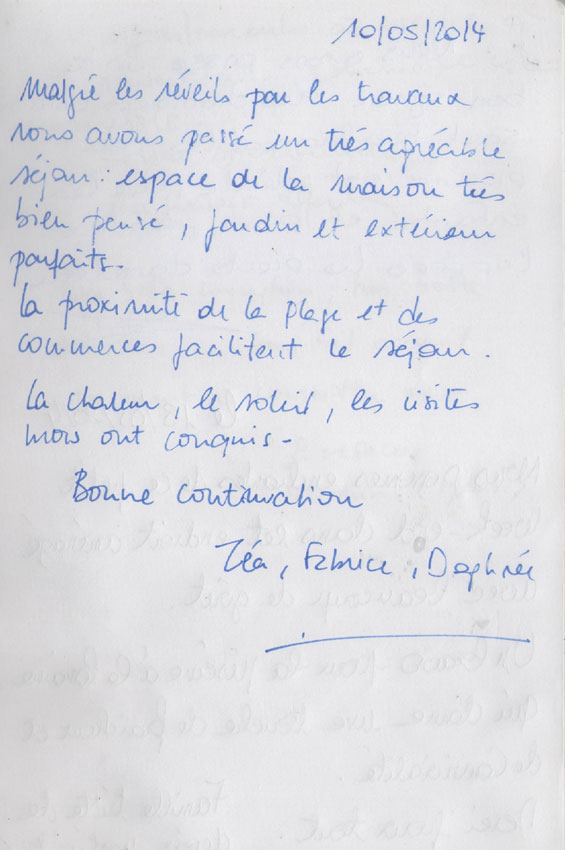 10/05/2014
Malgré les réveils par les travaux
nous avons passé un très agréable
séjour : espace de la maison très
bien pensé, jardin et extérieur
parfaits.
La proximité de la plage et des
commerces facilitent le séjour.
La chaleur, le soleil, les visites
nous ont conquis -
Bonne continuation
Fabrice, Daphnée